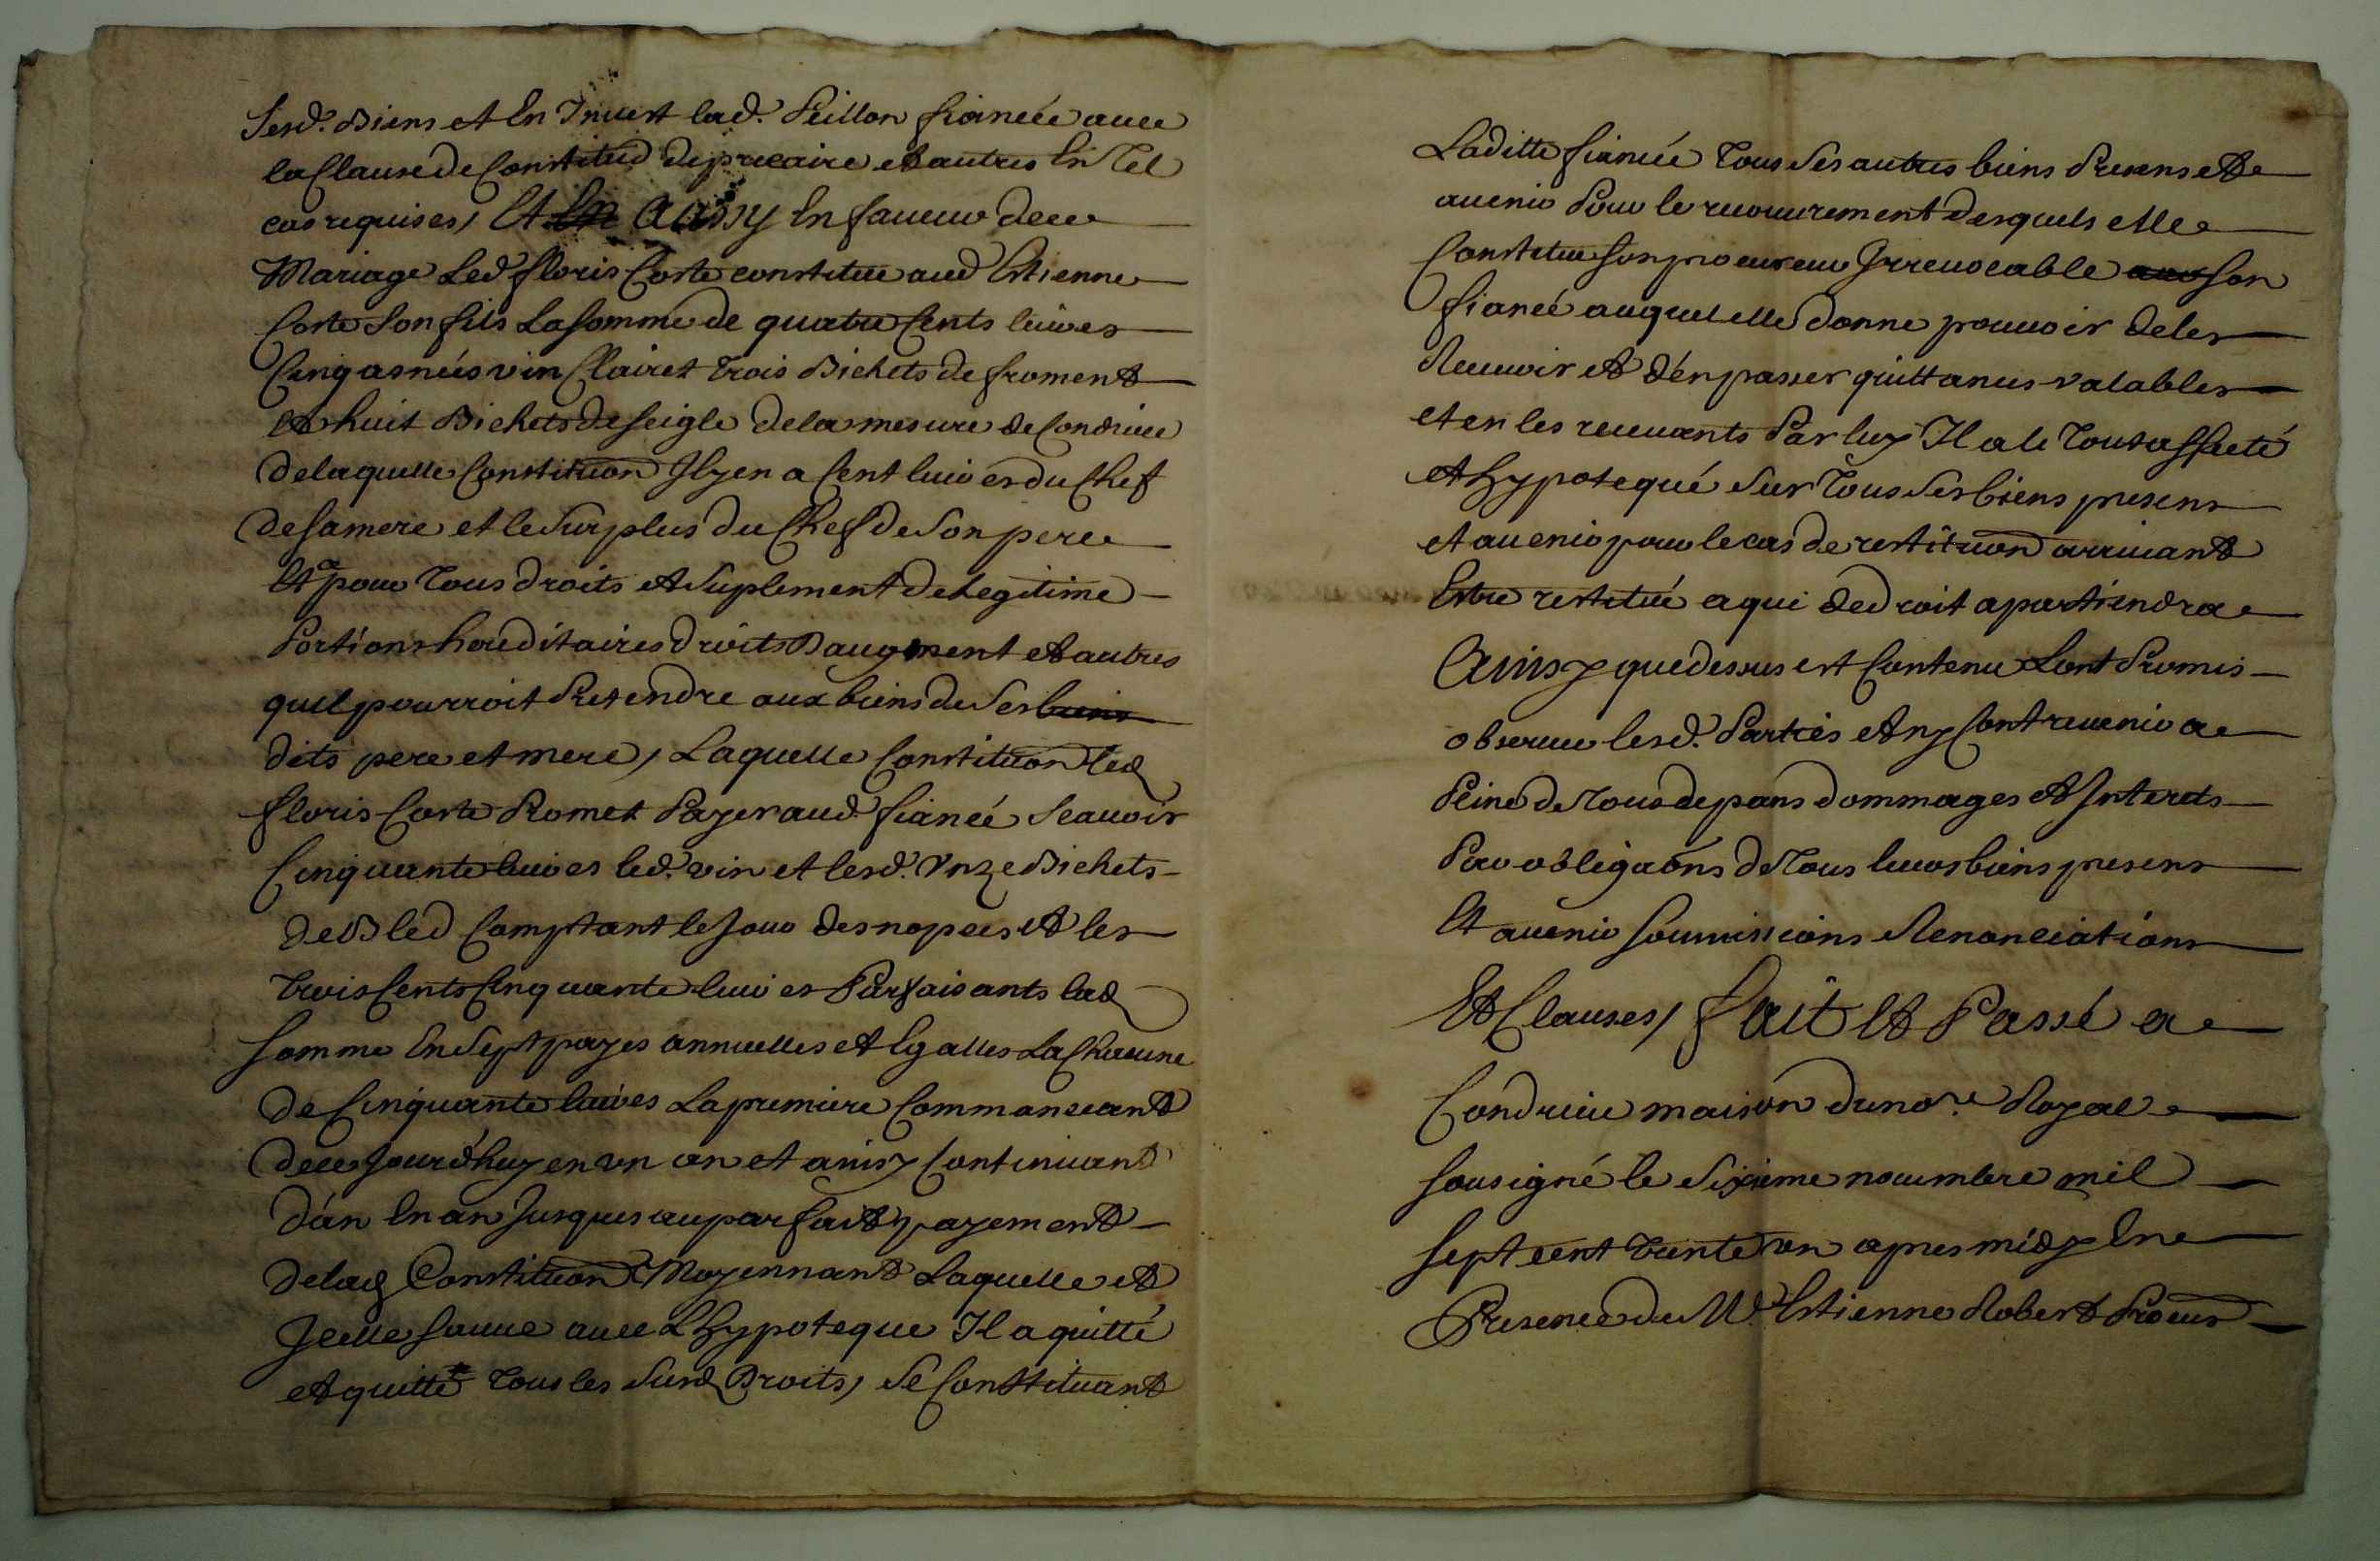 Sesd. Biens et En Invest lad. Peillon fiancée avec
la Clause de Constitud de precaire et autres En Tel
cas requises, Et En Aussy En faveur de ce
Mariage Led floris Corte constitue aud Estienne
Corte Son fils La somme de quatre Cents livres
Cinq asnées vin Clairet Trois Bichets de froment
Et huit Bichets de seigle de la mesure de Condrieu
de laquelle Constituon Il y en a Cent livres du Chef
de sa mere et le Surplus du Chef de Son pere
Et ce pour Tous droits et Suplement de Legitime
Portions hereditaires droits D augment et autres
quil pourroit Pretendre aux biens de Ses biens
dits pere et mere, Laquelle Constituon Led
floris Corte Promet Payer aud fiancé Scavoir
Cinquante livres led. vin et lesd. Unze Bichets
de Bled Comptant le Jour des nopces et les
Trois Cents Cinquante livres Parfaisants lad
somme En Sept payes annuelles et Egalles La Chacune
de Cinquante livres La premiere Commanceant
de ce Jourd'huy en un an et ainsy Continuant
d'an En an Jusques au parfait payement
de lad Constituon Moyennant Laquelle et
Icelle sauve avec L Hypoteque Il a quitté
et quitte Tous les Susd Droits, Se Constituant
Laditte fiancée Tous Ses autres biens Presens et
avenir Pour le recouvrement desquels elle
Constitue son procureur Irrevocable son
fiancé auquel elle donne pouvoir de les
Recevoir et d'en passer quittances valables
et en les recevants Par luy Il a le Tout affecté
et hypotequé Sur Tous Ses biens presens
et avenir pour le cas de restituon arrivant
Estre restitué a qui de droit apartiendra
Ainsy que dessus est Contenu Lont Promis
observer lesd. Parties et n'y Contrevenir a
Peine de Tous depans dommages et Interets
Par obligaons de Tous leurs biens presens
Et avenir soumissions Renonciations
Et Clauses, fait Et Passé a
Condrieu maison du nore. Royal
sousigné le Sixieme novembre mil
sept cent Trente un apres midy En
Presence de Me. Estienne Robert Procur